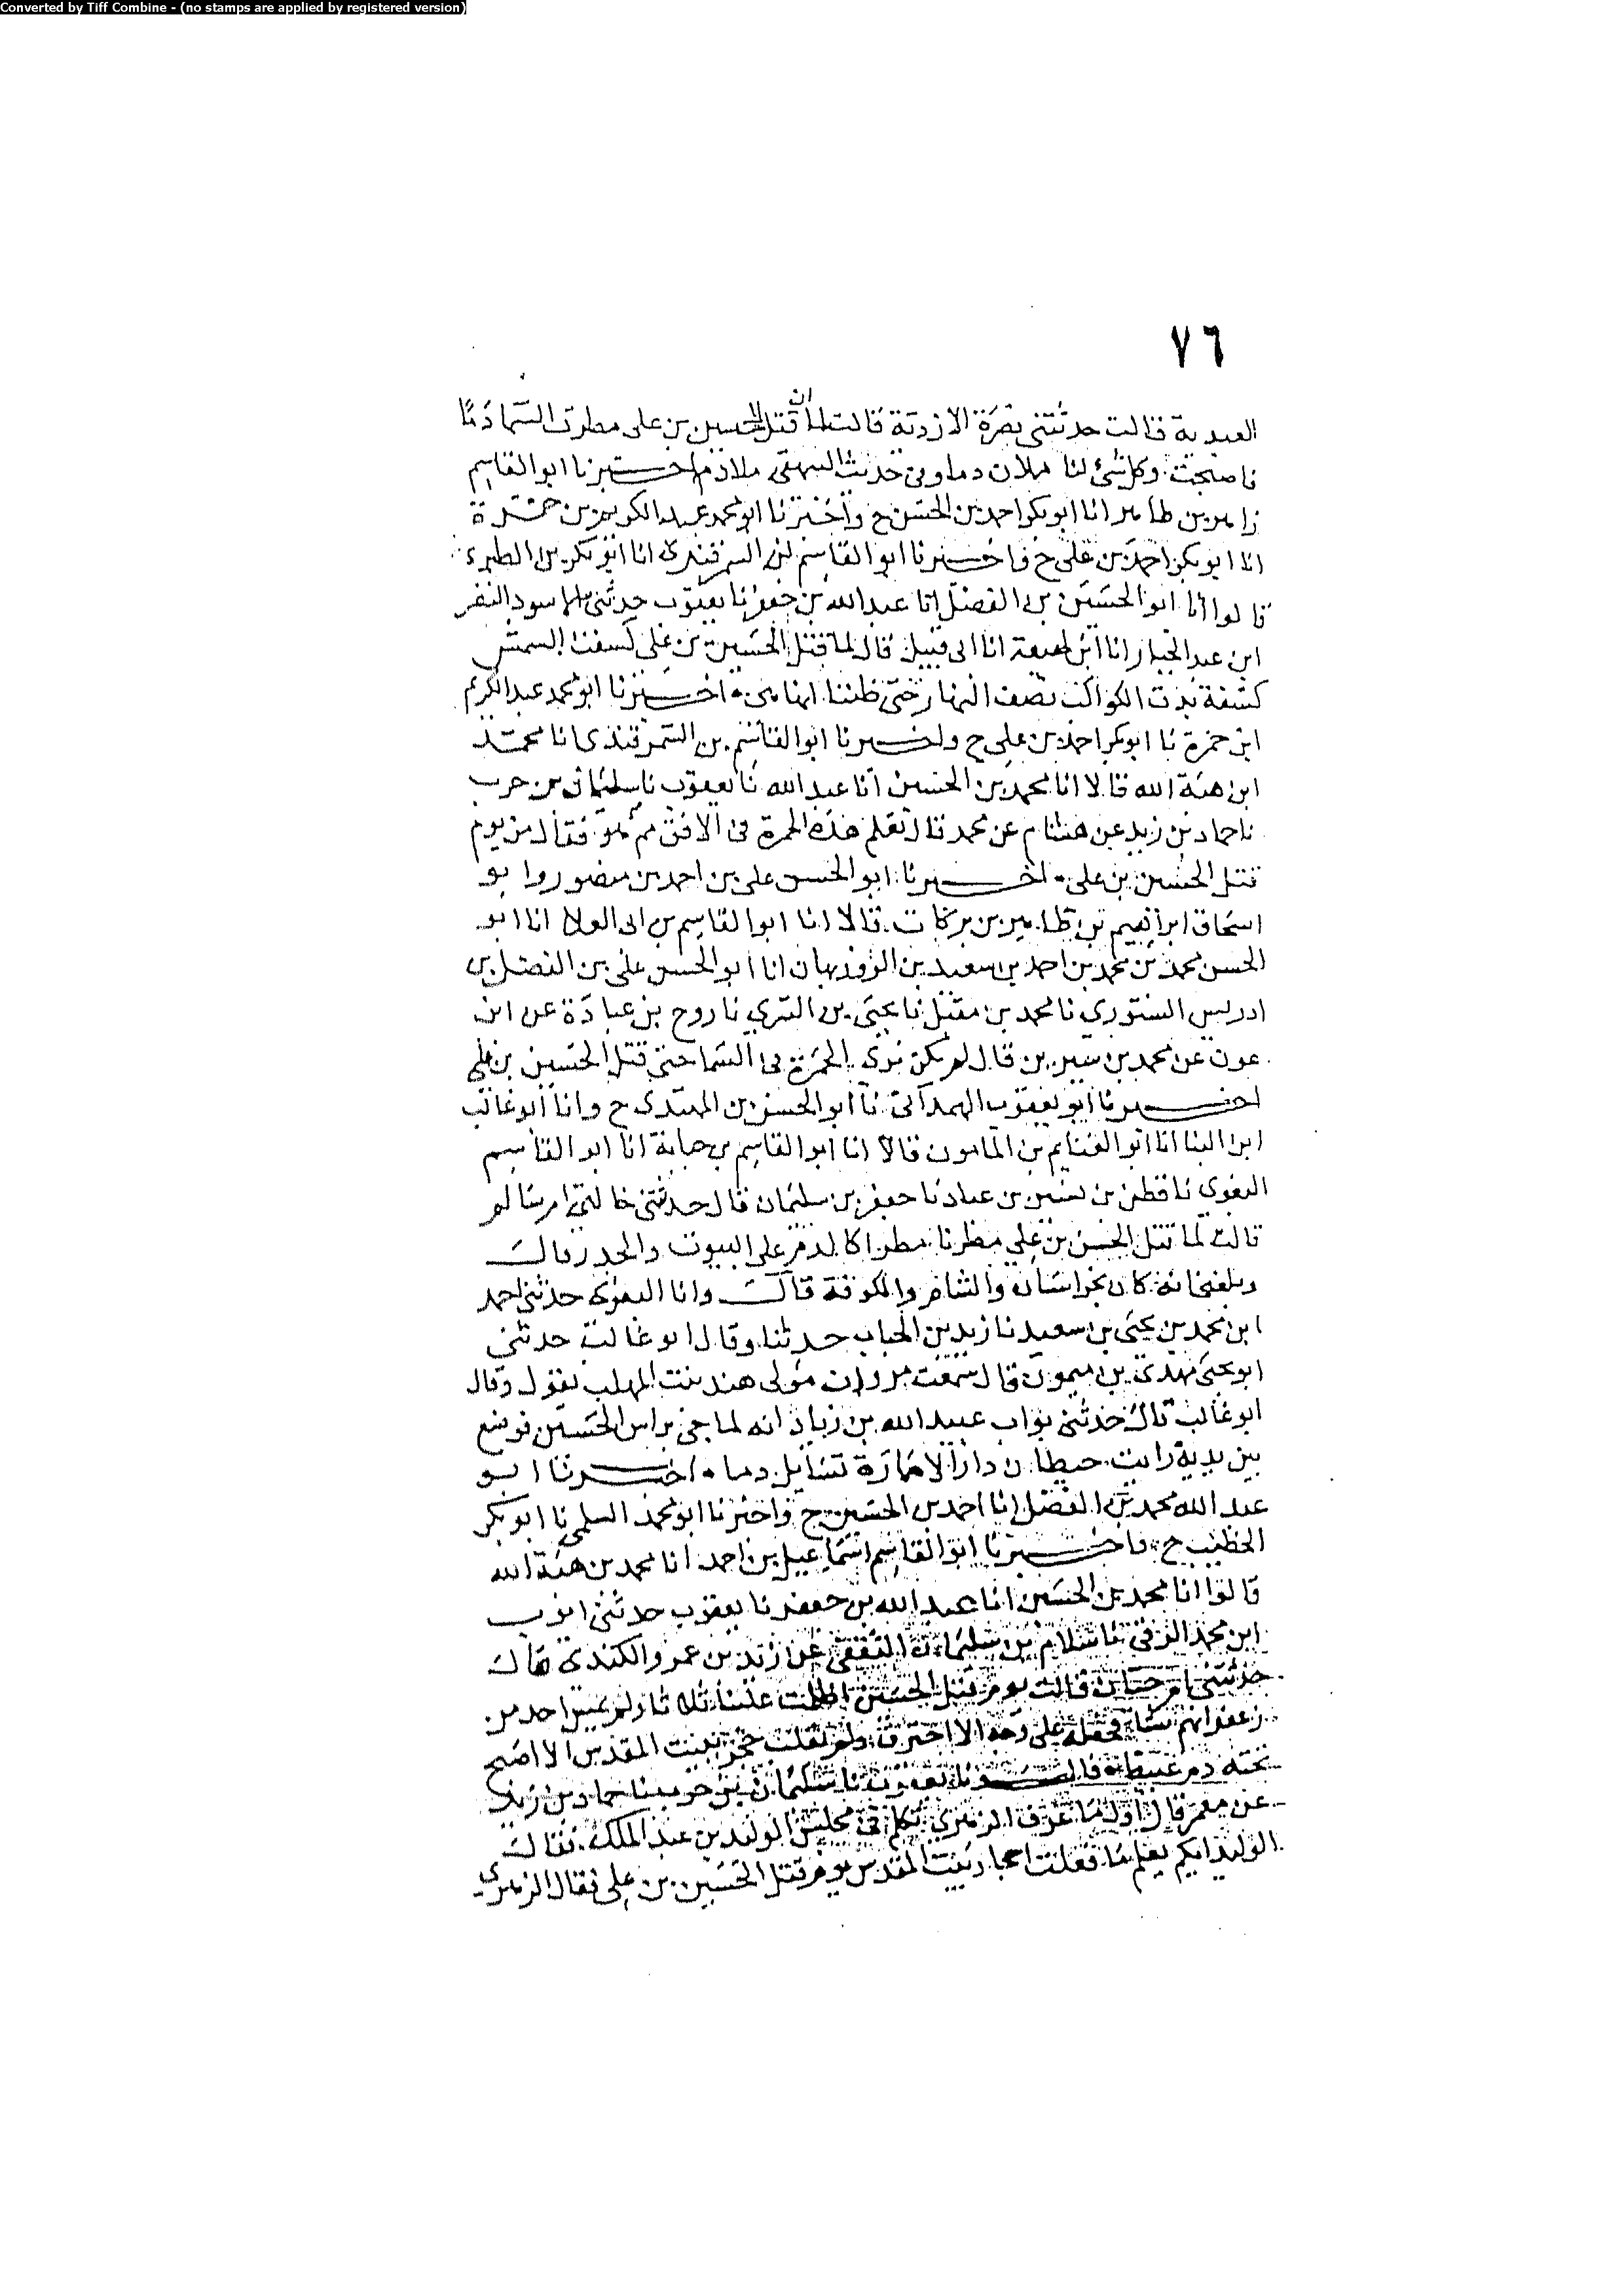 Converted by Tiff Combine - (no stamps are applied by registered version)
٧٦
العبدية قالت حدثتني نضرة الازدية قالت لما ان قتل الحسين بن على مطرت السماء دما
فاصبحت وكل شئ لنا ملان دما وفى حديث البيهقى ملاء دم اخبرنا ابو القاسم
زاهر بن طاهر انا ابو بكر احمد بن الحسين ح واخبرنا ابو محمد عبد الكريم بن حمزة
انا ابو بكر احمد بن على ح واخبرنا ابو القاسم بن السمرقندى انا ابو بكر بن الطبرى
قالوا انا ابو الحسين بن الفضل انا عبد الله بن جعفر نا يعقوب حدثنى ابو الاسود النضر
ابن عبد الجبار انا ابن لهيعة انا ابى قبيل قال لما قتل الحسين بن على كسفت الشمس
كسفة بدت الكواكب نصف النهار حتى ظننا انها هى اخبرنا ابو محمد عبد الكريم
ابن حمزة نا ابو بكر احمد بن على ح واخبرنا ابو القاسم بن السمرقندى انا محمد
ابن هبة الله قالا انا محمد بن الحسين انا عبد الله نا يعقوب نا سليمان بن حرب
نا حماد بن زيد عن هشام عن محمد قال تعلم هذه الحمرة فى الافق مم هو فقال من يوم
قتل الحسين بن على اخبرنا ابو الحسن على بن احمد بن منصور وابو
اسحاق ابراهيم بن طاهر بن بركات قالا انا ابو القاسم بن ابى العلا انا ابو
الحسن محمد بن محمد بن احمد بن سعيد بن الروزبهان انا ابو الحسن على بن الفضل بن
ادريس الستوري نا محمد بن مقبل نا يحيى بن السري نا روح بن عبادة عن ابن
عون عن محمد بن سيرين قال لم يكن نرى الحمرة فى السما حتى قتل الحسين بن على
اخبرنا ابو يعقوب الهمدانى نا ابو الحسين بن المهتدى ح وانا ابو غالب
ابن البنا انا ابو الغنايم بن المامون قالا انا ابو القاسم بن حبابة انا ابو القاسم
البغوي نا قطن بن نسير بن عباد نا جعفر بن سليمان قال حدثتنى خالتى ام سالم
قالت لما قتل الحسين بن على مطرنا مطرا كالدم على البيوت والجدر قالت
وبلغنى انه كان بخراسان والشام والكوفة قالت وانا البغوى حدثنى احمد
ابن محمد بن يحيى بن سعيد نا زيد بن الحباب حدثنا وقال ابو غالب حدثنى
ابو يحيى مهدى بن ميمون قال سمعت مروان مولى هند بنت المهلب يقول وقال
ابو غالب قال حدثنى بواب عبيد الله بن زياد انه لما جئ براس الحسين فوضع
بين يديه رايت حيطان دار الامارة تسايل دما اخبرنا ابو
عبد الله محمد بن الفضل انا احمد بن الحسين ح واخبرنا ابو محمد السلمى نا ابو بكر
الخطيب ح واخبرنا ابو القاسم اسماعيل بن احمد انا محمد بن هبة الله
قالوا انا محمد بن الحسين انا عبد الله بن جعفر نا يعقوب حدثنى ايوب
ابن محمد الرقى نا سلام بن سليمان الثقفى عن زيد بن عمرو الكندى قال
حدثتنى ام حيان قالت يوم قتل الحسين اظلمت علينا ثلاثا ولم يمس احد من
زعفرانهم شيئا فجعله على وجهه الا احترق ولم يقلب حجر ببيت المقدس الا اصبح
تحته دم عبيط قال ونا يعقوب نا سليمان بن حرب نا حماد بن زيد
عن معمر قال اول ما عرف الزهري تكلم فى مجلس الوليد بن عبد الملك فقال
الوليد ايكم يعلم ما فعلت احجار بيت المقدس يوم قتل الحسين بن على فقال الزهرى